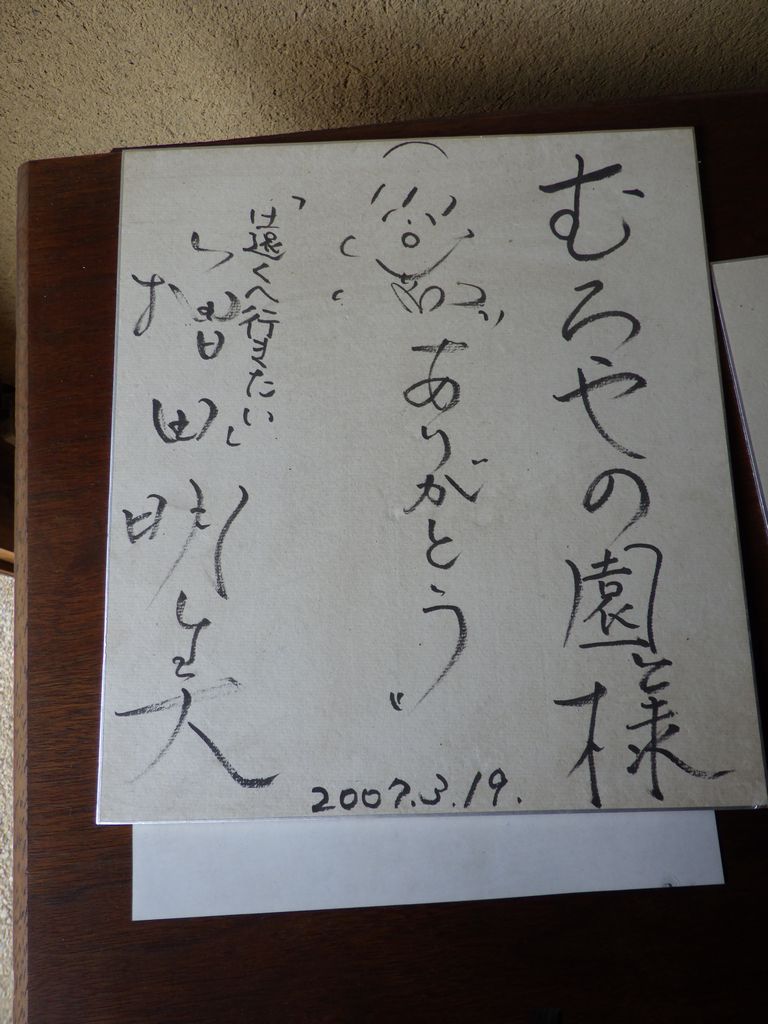 むろやの園様
"ありがとう"
「遠くへ行きたい」
増田明美
2007.3.19.